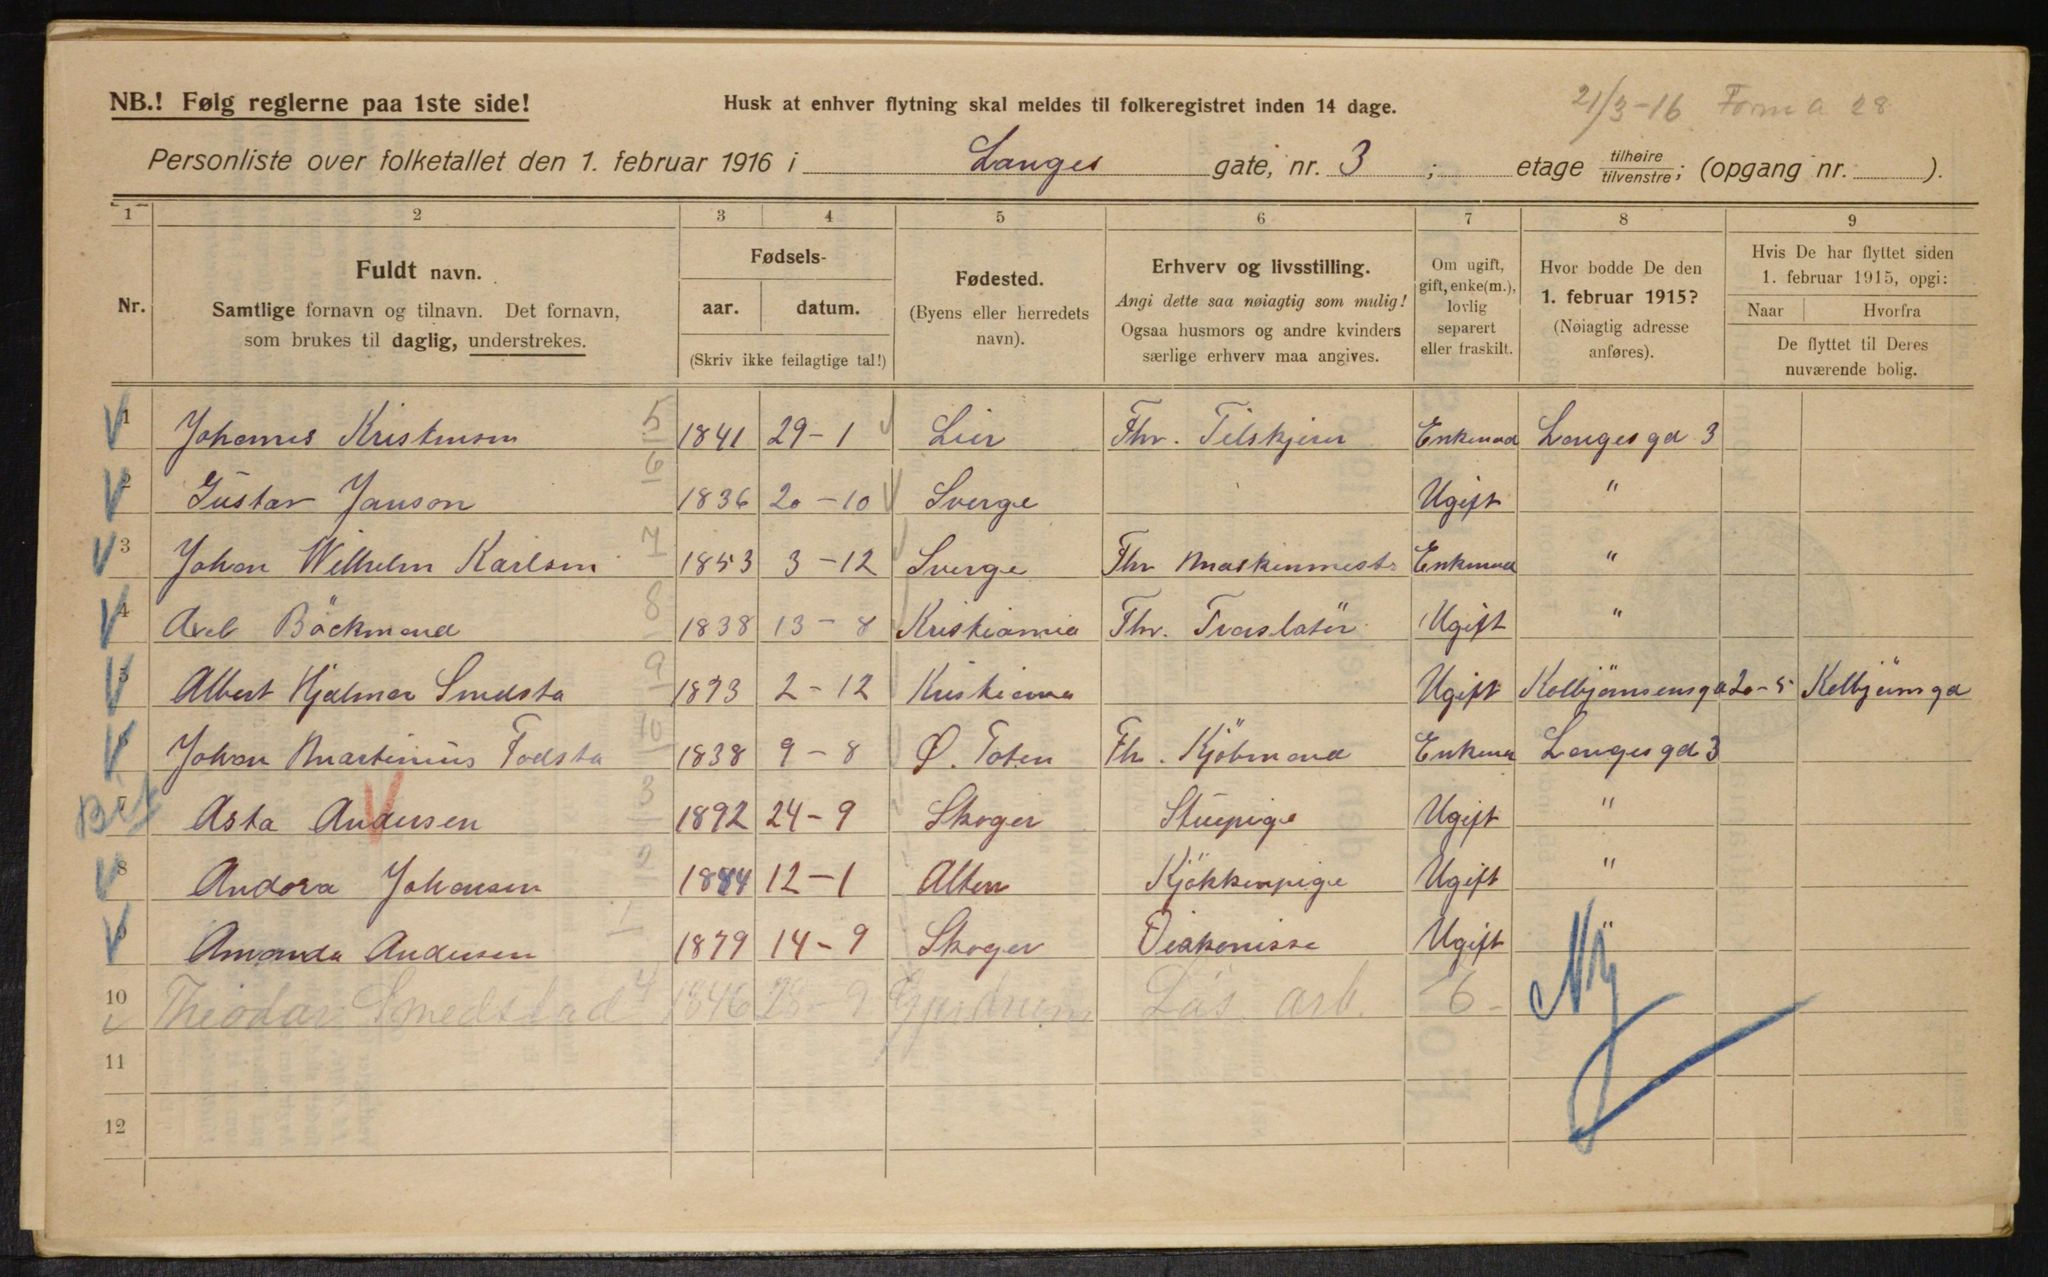 NB.! Følg reglerne paa 1ste side!
Husk at enhver flytning skal meldes til folkeregistret inden 14 dage.
21/3-16 Form a 28
Personliste over folketallet den 1. februar 1916 i Langes gate, nr. 3 ; etage tilhøire/tilvenstre; (opgang nr. ).
1 2 3 4 5 6 7 8 9
Nr.
Fuldt navn.
Samtlige fornavn og tilnavn. Det fornavn,
som brukes til daglig, understrekes.
Fødsels-
aar. datum.
(Skriv ikke feilagtige tal!)
Fødested.
(Byens eller herredets
navn).
Erhverv og livsstilling.
Angi dette saa nøiagtig som mulig!
Ogsaa husmors og andre kvinders
særlige erhverv maa angives.
Om ugift,
gift, enke(m.),
lovlig
separert
eller fraskilt.
Hvor bodde De den
1. februar 1915?
(Nøiagtig adresse
anføres).
Hvis De har flyttet siden
1. februar 1915, opgi:
Naar Hvorfra
De flyttet til Deres
nuværende bolig.
1 Johannes Kristensen 5 1841 29-1 Lier Fhv. Tilskjærer Enkemand Langesgd 3
2 Gustav Janson 6 1836 20-10 Sverge Ugift "
3 Johan Wilhelm Karlsen 7 1853 3-12 Sverge Fhv Maskinmestr Enkemand "
4 Axel Bäckmand 8 1838 13-8 Kristiania Fhv. Traslatör Ugift "
5 Albert Hjalmar Smedsta 9 1873 2-12 Kristiania Ugift Kolbjörnsensgd 20-5 Kolbjörnsgd
6 Johan Martinius Fodsta 10 1838 9-8 Ø. Toten Fh. Kjöbmand Enkema Langesgd 3
7 Asta Andersen 3 1892 24-9 Skoger Stuepige Ugift "
8 Andora Johansen 2 1884 12-1 Alten Kjökkenpige Ugift "
9 Amanda Andersen 1 1879 14-9 Skoger Diakonisse Ugift "
10 Theodor Smedstad 4 1846 28-9 Gjerdrum Løs. arb. E- Ny
11
12